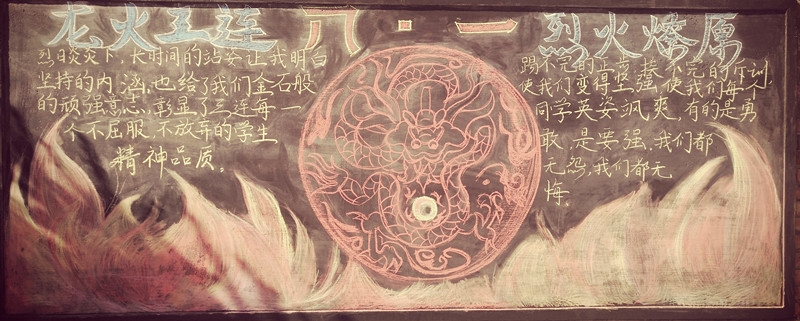 龙火三连 八·一 烈火燎原
烈日炎炎下，长时间的站姿让我明白
坚持的内涵，也给了我们金石般
的顽强意志，彰显了三连每一
个不屈服、不放弃的学生
精神品质。
踢不完的正步、扶不完的军训
使我们变得坚强，使我们每个
同学英姿飒爽，有的是勇
敢，是坚强，我们都
无怨，我们都无
悔。